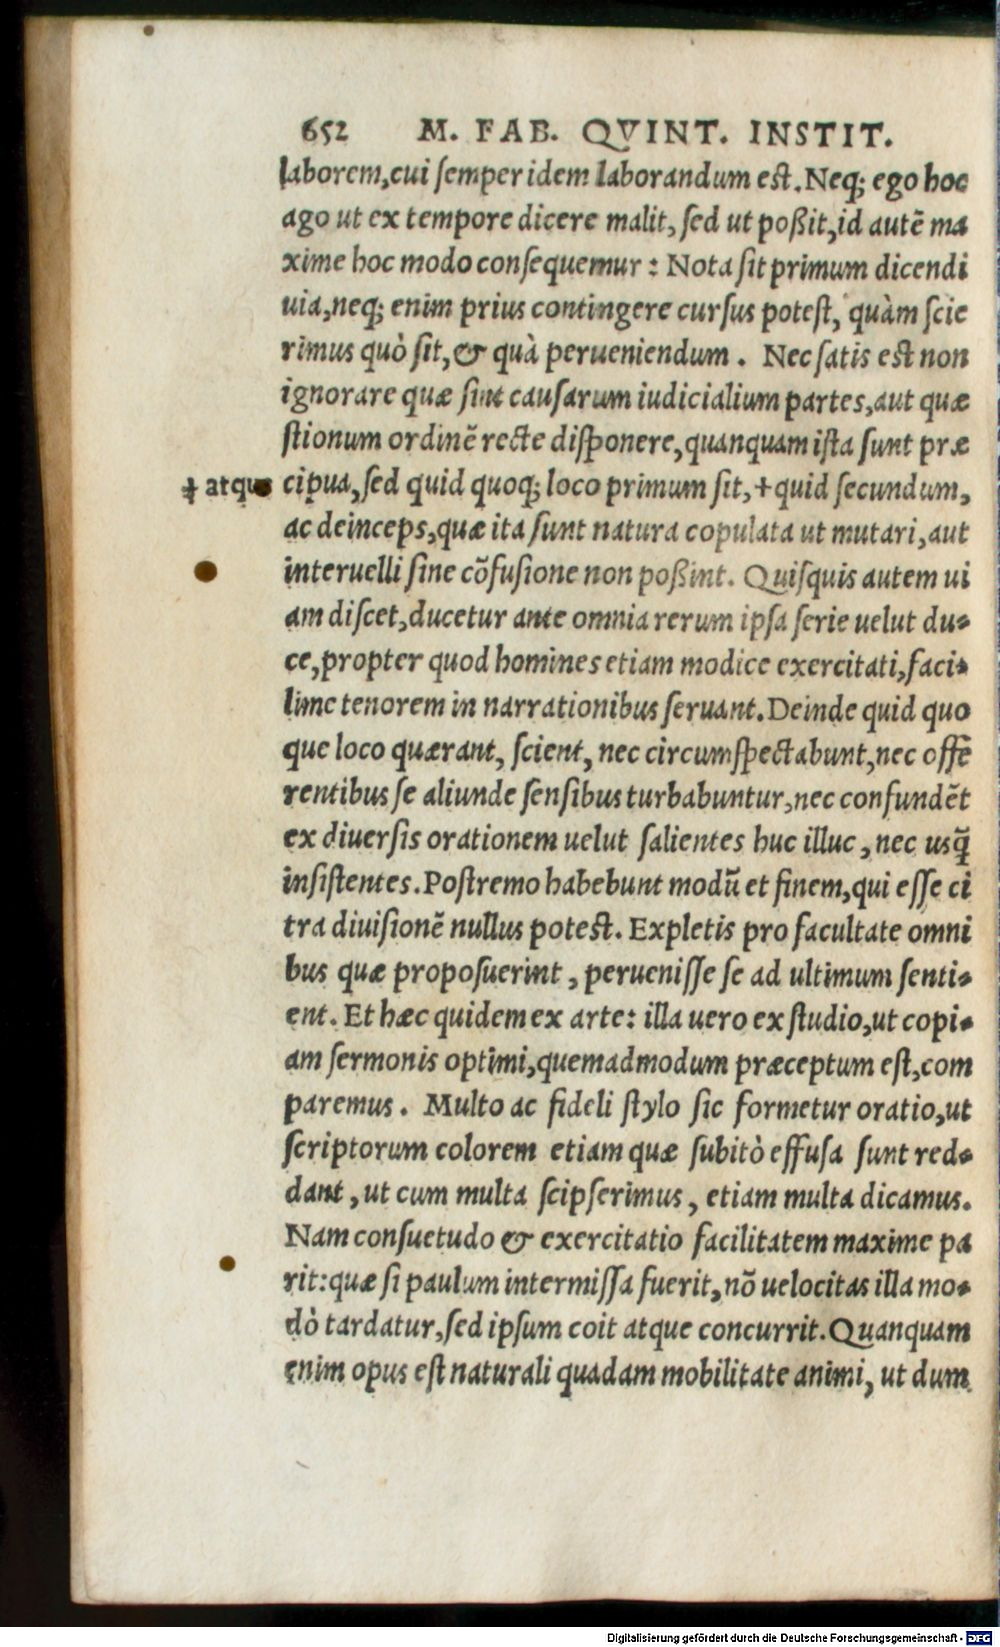 652 M. FAB. QVINT. INSTIT.
laborem,cui semper idem laborandum est.Neq; ego hoc
ago ut ex tempore dicere malit, sed ut poßit,id autē ma
xime hoc modo consequemur : Nota sit primum dicendi
uia,neq; enim prius contingere cursus potest, quàm scie
rimus quò sit,& quà perueniendum . Nec satis est non
ignorare quæ sint causarum iudicialium partes,aut quæ
stionum ordinē recte disponere,quanquam ista sunt præ
‡ atque cipua,sed quid quoq; loco primum sit,+quid secundum,
ac deinceps,quæ ita sunt natura copulata ut mutari,aut
interuelli sine cōfusione non poßint. Quisquis autem ui
am discet,ducetur ante omnia rerum ipsa serie uelut du-
ce,propter quod homines etiam modice exercitati,faci-
lime tenorem in narrationibus seruant.Deinde quid quo
que loco quærant, scient, nec circumspectabunt,nec offē
rentibus se aliunde sensibus turbabuntur,nec confundēt
ex diuersis orationem uelut salientes huc illuc , nec usq̃
insistentes.Postremo habebunt modū et finem,qui esse ci
tra diuisionē nullus potest. Expletis pro facultate omni
bus quæ proposuerint , peruenisse se ad ultimum senti-
ent. Et hæc quidem ex arte: illa uero ex studio,ut copi-
am sermonis optimi,quemadmodum præceptum est,com
paremus . Multo ac fideli stylo sic formetur oratio,ut
scriptorum colorem etiam quæ subitò effusa sunt red-
dant , ut cum multa scipserimus , etiam multa dicamus.
Nam consuetudo & exercitatio facilitatem maxime pa
rit:quæ si paulum intermissa fuerit,nō uelocitas illa mo-
dò tardatur,sed ipsum coit atque concurrit.Quanquam
enim opus est naturali quadam mobilitate animi, ut dum
Digitalisierung gefördert durch die Deutsche Forschungsgemeinschaft - DFG